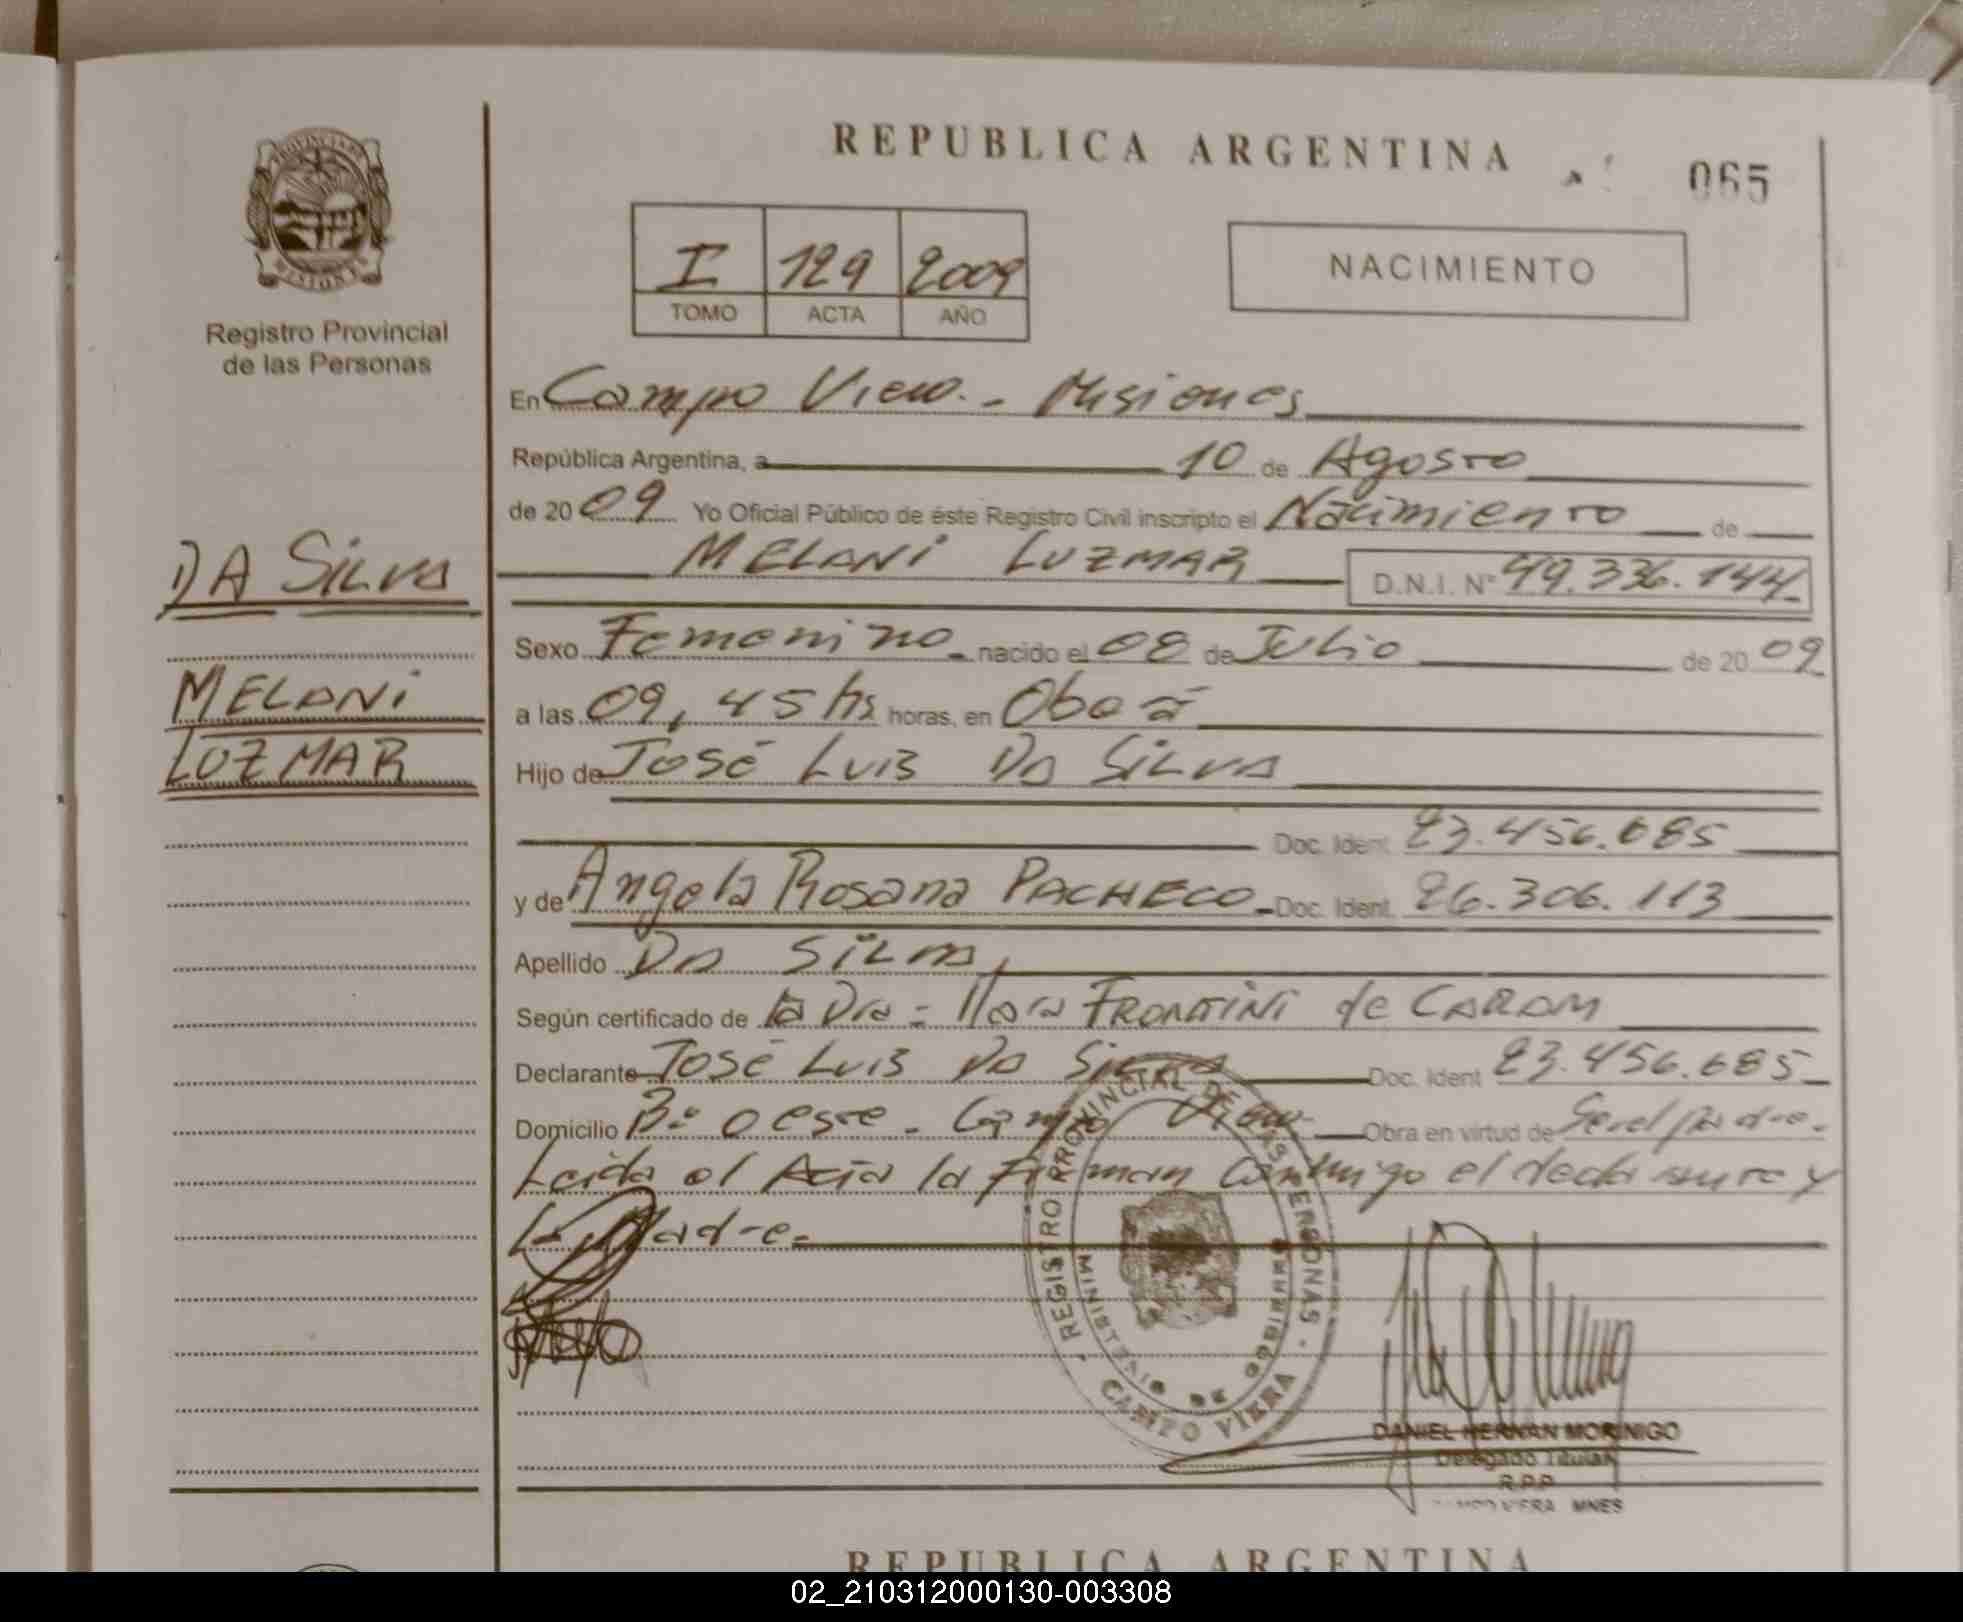 REPUBLICA ARGENTINA
065
PROVINCIA DE MISIONES
Registro Provincial
de las Personas
I 129 2009
TOMO ACTA AÑO
NACIMIENTO
En Campo Viera - Misiones
República Argentina, a 10 de Agosto
de 2009 Yo Oficial Público de éste Registro Civil inscripto el Nacimiento de
MELANI LUZMAR D.N.I. Nº 49.336.144
DA SILVA
MELANI
LUZMAR
Sexo Femenino nacido el 08 de Julio de 2009
a las 09,45 hs horas, en Oberá
Hijo de José Luis DA SILVA
Doc. Ident. 23.456.685
y de Angela Rosana PACHECO Doc. Ident. 26.306.113
Apellido DA SILVA
Según certificado de la Dra. FRONTINI de CARAM
Declarante José Luis DA SILVA Doc. Ident 23.456.685
Domicilio Bº oeste - Campo Viera Obra en virtud de Ser el padre.
Leida el Acta la firman conmigo el declarante y
la Madre.
REGISTRO PROVINCIAL DE LAS PERSONAS
MINISTERIO DE GOBIERNO
CAMPO VIERA
DANIEL HERNAN MORINIGO
Delegado Titular
R.P.P
CAMPO VIERA MNES
REPUBLICA ARGENTINA
02_210312000130-003308